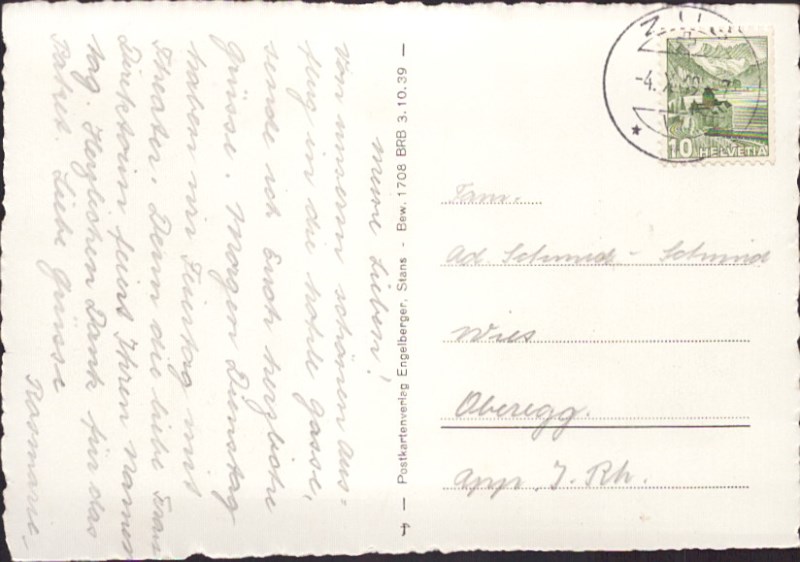 Meine Lieben!
Von unserm schönen Aus-
flug in die hohle Gasse,
sende ich Euch herzliche
Grüsse. Morgen Dienstag
haben wir Feiertag mit
Theater, Denn die liebe Frau
Direktorin feiert Ihren Namens
tag. Herzlichen Dank für das
Paket. Liebe Grüsse
Rosmarie.
— Postkartenverlag Engelberger, Stans - Bew. 1708 BRB 3.10.39 —
HELVETIA
10
Fam.
Ad. Schmid - Schmid
Wies
Oberegg.
App. I. Rh.